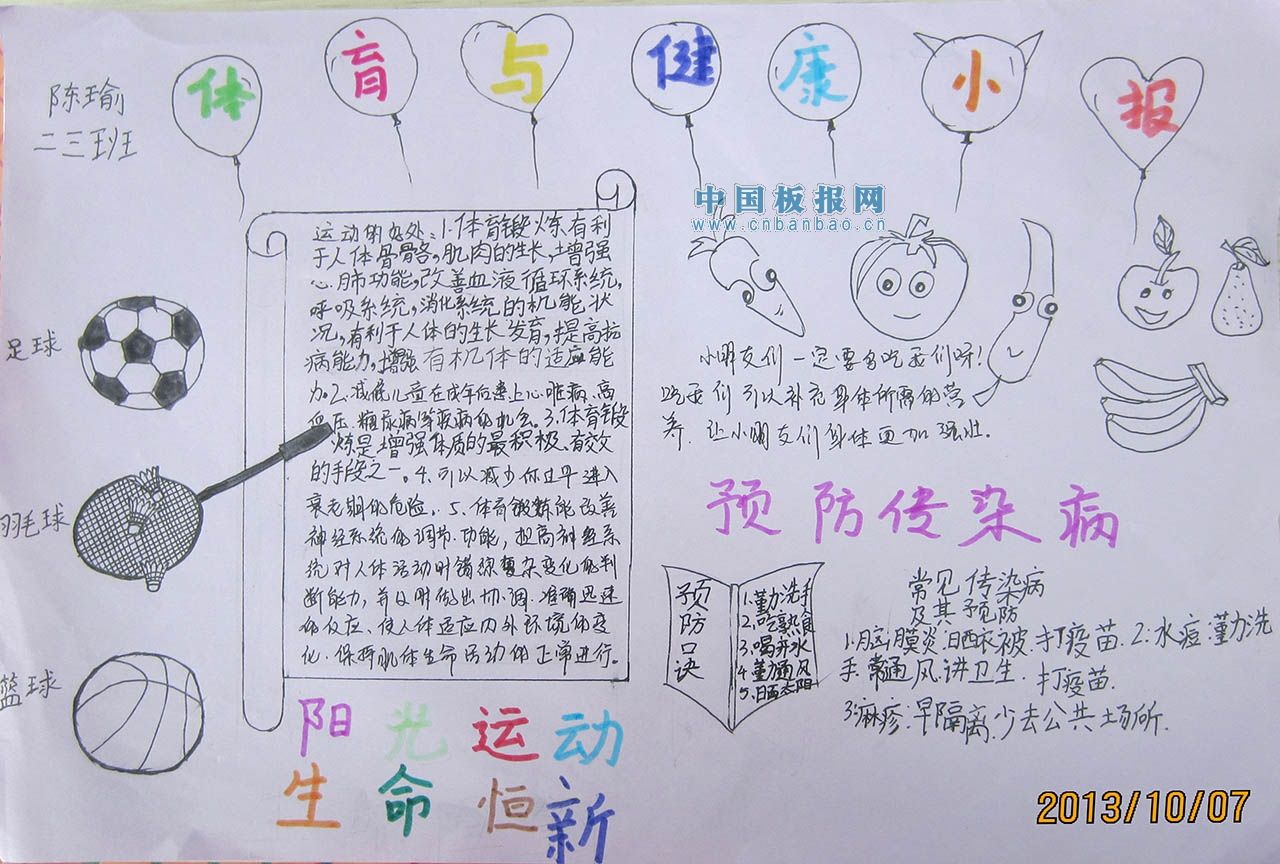 体育与健康小报
陈瑜
二三班
中国板报网
www.cnbanbao.cn
足球
羽毛球
篮球
运动的好处:1.体育锻炼有利
于人体骨骼,肌肉的生长,增强
心肺功能,改善血液循环系统,
呼吸系统,消化系统的机能状
况,有利于人体的生长发育,提高抗
病能力,增强有机体的适应能
力2.减低儿童在成年后患上心脏病、高
血压,糖尿病等疾病的机会。3.体育锻
炼是增强体质的最积极、有效
的手段之一。4.可以减少你过早进入
衰老期的危险。5.体育锻炼能改善
神经系统的调节功能,提高神经系
统对人体活动时错综复杂变化的判
断能力,并及时做出协调.准确迅速
的反应、使人体适应内外环境的变
化.保持肌体生命活动的正常进行。
阳光运动
生命恒新
小朋友们一定要多吃我们呀!
吃我们可以补充身体所需的营
养.让小朋友们身体更加强壮.
预防传染病
预防口诀
1.勤洗手
2.吃熟食
3.喝开水
4.勤通风
5.晒太阳
常见传染病
及其预防
1.脑膜炎:晒衣被.打疫苗.2:水痘:勤洗
手.常通风.讲卫生.打疫苗.
3:麻疹:早隔离.少去公共场所.
2013/10/07